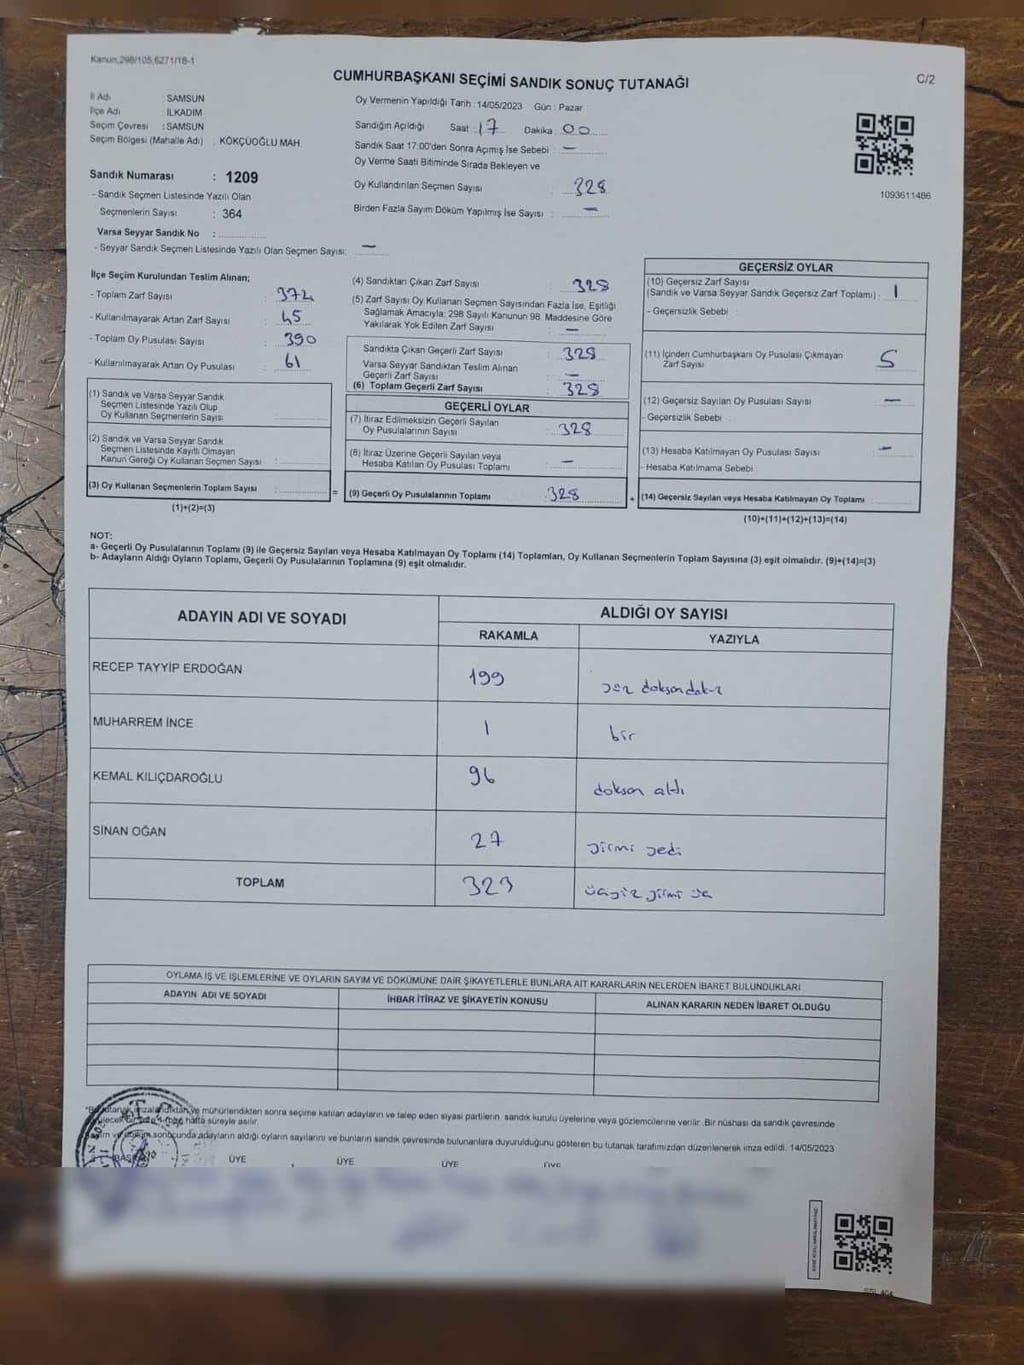 Kanun,298/105,6271/18-1
CUMHURBAŞKANI SEÇİMİ SANDIK SONUÇ TUTANAĞI
C/2
İl Adı : SAMSUN
İlçe Adı : İLKADIM
Seçim Çevresi : SAMSUN
Seçim Bölgesi (Mahalle Adı) : KÖKÇÜOĞLU MAH.
Sandık Numarası : 1209
- Sandık Seçmen Listesinde Yazılı Olan
Seçmenlerin Sayısı : 364
Varsa Seyyar Sandık No :
- Seyyar Sandık Seçmen Listesinde Yazılı Olan Seçmen Sayısı: —
Oy Vermenin Yapıldığı Tarih : 14/05/2023 Gün : Pazar
Sandığın Açıldığı Saat : 17 Dakika : 00
Sandık Saat 17:00'den Sonra Açımış İse Sebebi : —
Oy Verme Saati Bitiminde Sırada Bekleyen ve
Oy Kullandırılan Seçmen Sayısı : 328
Birden Fazla Sayım Döküm Yapılmış İse Sayısı : —
1093611486
İlçe Seçim Kurulundan Teslim Alınan;
- Toplam Zarf Sayısı : 372
- Kullanılmayarak Artan Zarf Sayısı : 45
- Toplam Oy Pusulası Sayısı : 390
- Kullanılmayarak Artan Oy Pusulası : 61
(1) Sandık ve Varsa Seyyar Sandık
Seçmen Listesinde Yazılı Olup
Oy Kullanan Seçmenlerin Sayısı :
(2) Sandık ve Varsa Seyyar Sandık
Seçmen Listesinde Kayıtlı Olmayan
Kanun Gereği Oy Kullanan Seçmen Sayısı :
(3) Oy Kullanan Seçmenlerin Toplam Sayısı :
(1)+(2)=(3)
(4) Sandıktan Çıkan Zarf Sayısı : 328
(5) Zarf Sayısı Oy Kullanan Seçmen Sayısından Fazla İse, Eşitliği
Sağlamak Amacıyla; 298 Sayılı Kanunun 98. Maddesine Göre
Yakılarak Yok Edilen Zarf Sayısı : —
Sandıkta Çıkan Geçerli Zarf Sayısı : 328
Varsa Seyyar Sandıktan Teslim Alınan
Geçerli Zarf Sayısı : —
(6) Toplam Geçerli Zarf Sayısı : 328
GEÇERLİ OYLAR
(7) İtiraz Edilmeksizin Geçerli Sayılan
Oy Pusulalarının Sayısı : 328
(8) İtiraz Üzerine Geçerli Sayılan veya
Hesaba Katılan Oy Pusulası Toplamı : —
= (9) Geçerli Oy Pusulalarının Toplamı : 328
GEÇERSİZ OYLAR
(10) Geçersiz Zarf Sayısı
(Sandık ve Varsa Seyyar Sandık Geçersiz Zarf Toplamı) : 1
- Geçersizlik Sebebi :
(11) İçinden Cumhurbaşkanı Oy Pusulası Çıkmayan
Zarf Sayısı : 5
(12) Geçersiz Sayılan Oy Pusulası Sayısı : —
- Geçersizlik Sebebi :
(13) Hesaba Katılmayan Oy Pusulası Sayısı : —
- Hesaba Katılmama Sebebi :
+ (14) Geçersiz Sayılan veya Hesaba Katılmayan Oy Toplamı :
(10)+(11)+(12)+(13)=(14)
NOT:
a- Geçerli Oy Pusulalarının Toplamı (9) ile Geçersiz Sayılan veya Hesaba Katılmayan Oy Toplamı (14) Toplamları, Oy Kullanan Seçmenlerin Toplam Sayısına (3) eşit olmalıdır. (9)+(14)=(3)
b- Adayların Aldığı Oyların Toplamı, Geçerli Oy Pusulalarının Toplamına (9) eşit olmalıdır.
ADAYIN ADI VE SOYADI
ALDIĞI OY SAYISI
RAKAMLA YAZIYLA
RECEP TAYYİP ERDOĞAN 199 yüz doksandokuz
MUHARREM İNCE 1 bir
KEMAL KILIÇDAROĞLU 96 doksan altı
SİNAN OĞAN 27 yirmi yedi
TOPLAM 323 üçyüz yirmi üç
OYLAMA İŞ VE İŞLEMLERİNE VE OYLARIN SAYIM VE DÖKÜMÜNE DAİR ŞİKAYETLERLE BUNLARA AİT KARARLARIN NELERDEN İBARET BULUNDUKLARI
ADAYIN ADI VE SOYADI İHBAR İTİRAZ VE ŞİKAYETİN KONUSU ALINAN KARARIN NEDEN İBARET OLDUĞU
tutanak imzalandıktan ve mühürlendikten sonra seçime katılan adayların ve talep eden siyasi partilerin, sandık kurulu üyelerine veya gözlemcilerine verilir. Bir nüshası da sandık çevresinde
hafta süreyle asılır.
sonucunda adayların aldığı oyların sayılarını ve bunların sandık çevresinde bulunanlara duyurulduğunu gösteren bu tutanak tarafımızdan düzenlenerek imza edildi. 14/05/2023
ÜYE ÜYE ÜYE ÜYE